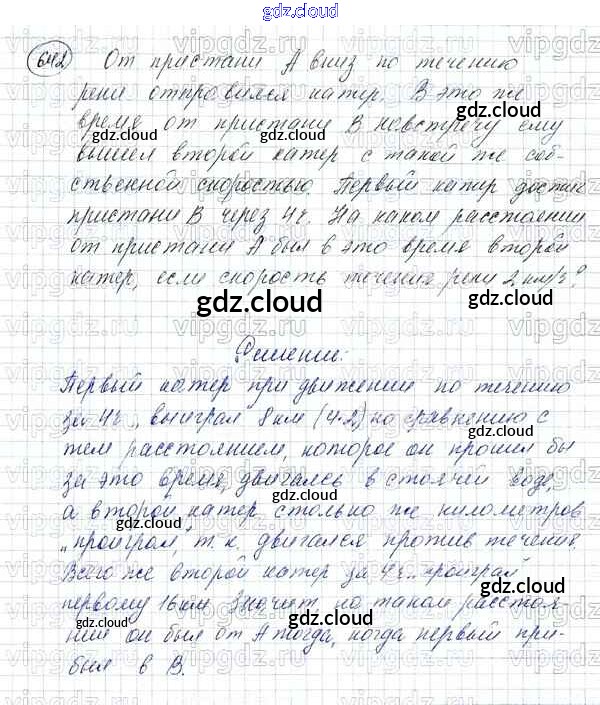 gdz.cloud
642 От пристани А вниз по течению
реки отправился катер. В это же
время от пристани В навстречу ему
вышел второй катер с такой же соб-
ственной скоростью. Первый катер достиг
пристани В через 4ч. На каком расстоянии
от пристани А был в это время второй
катер, если скорость течения реки 2 км/ч?
gdz.cloud gdz.cloud
Решение:
Первый катер при движении по течению
за 4ч „выиграл 8 км (4·2) по сравнению с
тем расстоянием, которое он прошел бы
за это время, двигаясь в стоячей воде,
а второй катер столько же километров
„проиграл", т.к. двигался против течения.
Всего же второй катер за 4ч „проиграл
первому 16км. Значит на таком расстоя-
нии он был от А тогда, когда первый при-
был в В.
gdz.cloud